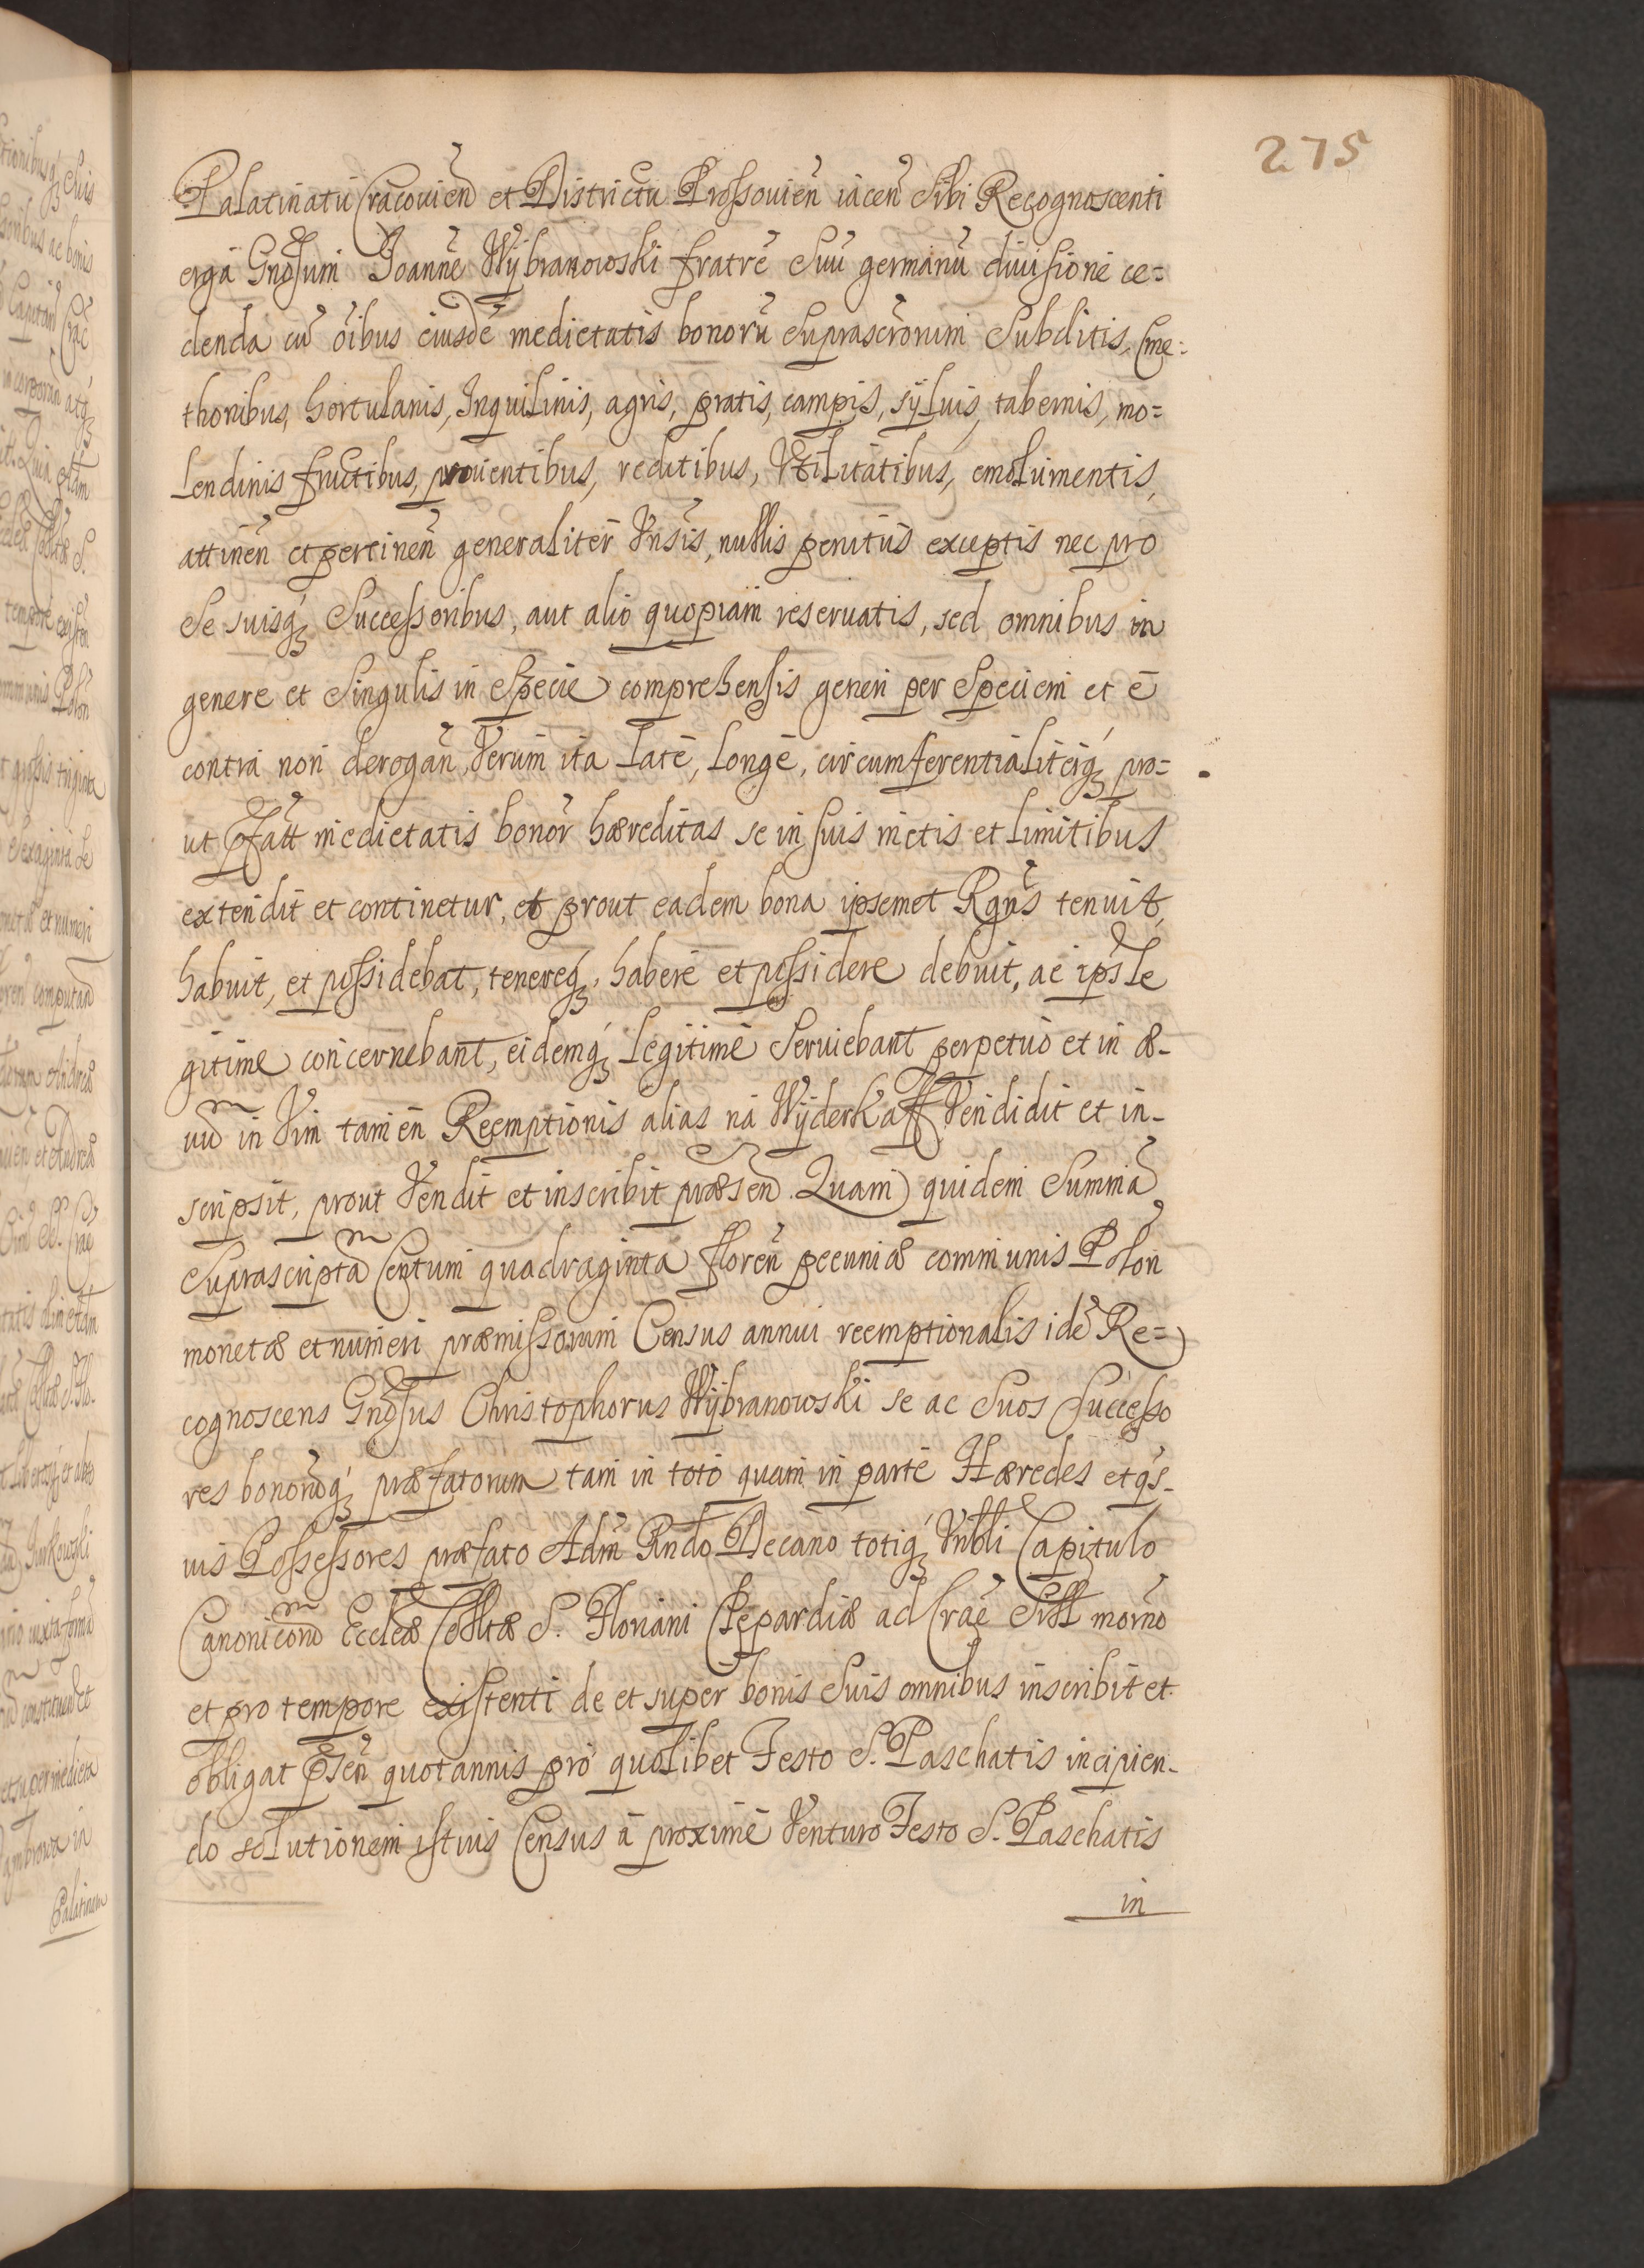 275
Palatinatu Cracouien̄ et Districtu Prossouien̄ iacen̄ Sibi Recognoscenti
erga Gnōsum Joannē Wÿbranowski fratrē Suū germanū diuisione ce=
denda cū oībus eiusdē medietatis bonorū Suprascrōrum Subditis, Cme=
thonibus, hortulanis, Inquilinis, agris, pratis, campis, sÿluis, tabernis, mo=
lendinis fructibus, prouentibus, reditibus, Vtilitatibus, emolumentis,
attinen̄ et pertinen̄ generaliter Vnsis, nullis penitus exceptis nec pro
Se suisq́ꝫ Successoribus, aut alio quopiam reseruatis, sed omnibus in
genere et Singulis in Specie comprehensis generi per Speciem et ē
contra non derogan̄ Verum ita Late, Longe, circumferentialiterq́ꝫ pro=
ut p̄fatt medietatis bonor̄ hæreditas se in suis metis et Limitibus
extendit et continetur, et prout eadem bona ipsemet Rgn̄s tenuit,
habuit, et possidebat, tenereq́ꝫ, habere et possidere debuit, ac ips̄ Le
gitime concernebant, eidemq́ꝫ Legitime Seruiebant perpetuo et in æ-
uū in Vim tamen Reemptionis alias na Wÿderkaff Vendidit et in-
scripsit, prout Vendit et inscribit præsen̄. Quam quidem Summā
Suprascriptā Centum quadraginta floren̄ pecuniæ communis Polon̄
monetæ et numeri præmissorum Census annui reemptionalis idē Re=
cognoscens Gnōsus Christophorus Wÿbranowski se ac Suos Successo
res bonorūq́ꝫ præfatorum tam in toto quam in parte Hæredes et q̄s-
uis Possessores præfato Adm̄ Rndo Decano totiq́ꝫ Vnbli Capitulo
Canonicorū Eccl̄æ Collt̄æ S. Floriani Clepardiæ ad Crac̄ Sitt mor̄no
et pro tempore existenti de et super bonis Suis omnibus inscribit et
obligat p̄sen̄ quotannis pro quolibet Festo S. Paschatis incipien-
do solutionem istius Census ā proxime Venturo Festo S. Paschatis
in